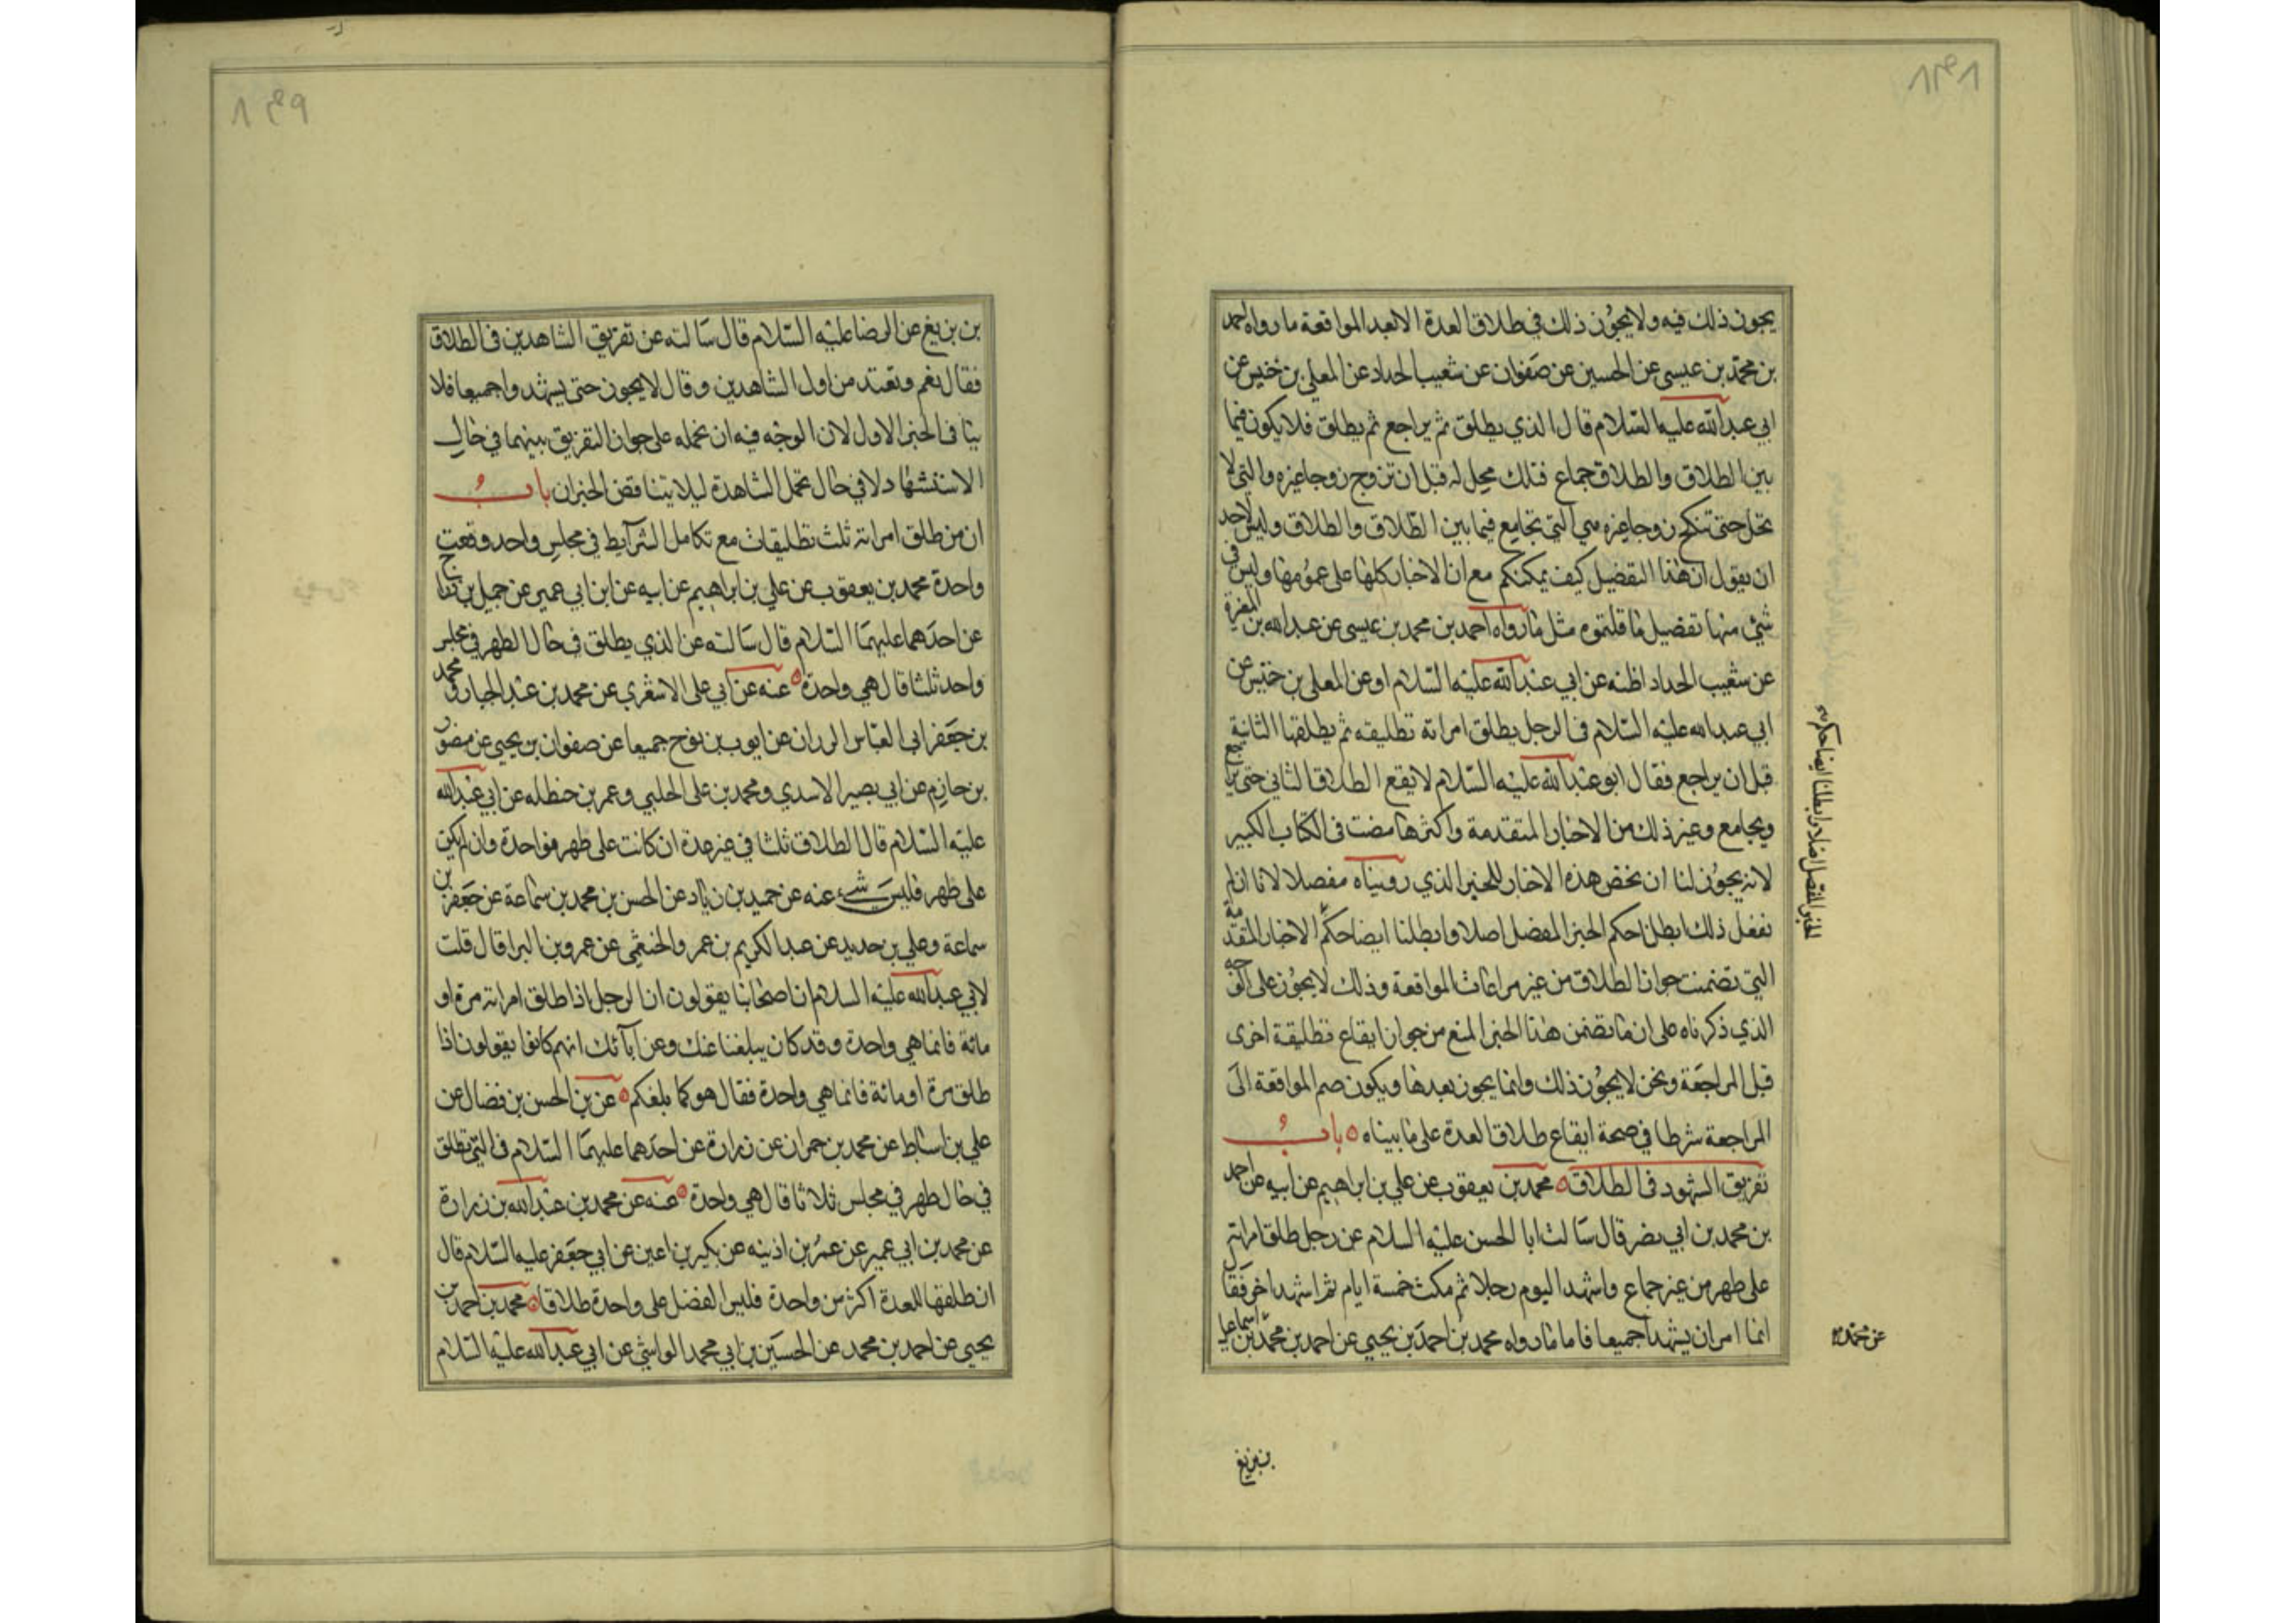 يجوز ذلك فيه ولا يجوز ذلك في طلاق العدة الا بعد المواقعة ما رواه احمد
بن محمد بن عيسى عن الحسين عن صفوان عن شعيب الحداد عن المعلى بن خنيس عن
ابي عبد الله عليه السلام قال الذي يطلق ثم يراجع ثم يطلق فلا يكون فيما
بين الطلاق والطلاق جماع فتلك تحل له قبل ان تزوج زوجا غيره والتي لا
تحل حتى تنكح زوجا غيره هي التي تجامع فيما بين الطلاق والطلاق وليس لاحد
ان يقول ان هذا التفضيل كيف يمكنكم مع ان الاخبار كلها على عمومها وليس في
شئ منها تفضيل ما قلتموه مثل ما رواه احمد بن محمد بن عيسى عن عبد الله بن المغيرة
عن شعيب الحداد اظنه عن ابي عبد الله عليه السلام او عن المعلى بن خنيس عن
ابي عبد الله عليه السلام في الرجل يطلق امراته تطليقه ثم يطلقها الثانية
قبل ان يراجع فقال ابو عبد الله عليه السلام لا يقع الطلاق الثاني حتى يراجع
ويجامع وغير ذلك من الاخبار المتقدمة واكثرها مضت في الكتاب الكبير
لانه يجوز لنا ان نخص هذه الاخبار للخبر الذي رويناه مفصلا لانا ان لم
نفعل ذلك ابطلنا حكم الخبر المفصل اصلا وابطلنا ايضا حكم الاخبار المتقدمة
التي تضمنت جواز الطلاق من غير مراعاث المواقعة وذلك لا يجوز على الوجه
الذي ذكرناه على ان ما تضمن هذا الخبر المنع من جواز ايقاع تطليقة اخرى
قبل المراجعة ونحن لا يجوز ذلك وانما يجوز بعدها ويكون ضم المواقعة الى
المراجعة شرطا في صحة ايقاع طلاق العدة على ما بيناه باب
تفريق الشهود في الطلاق محمد بن يعقوب عن علي بن ابراهيم عن ابيه عن احمد
بن محمد بن ابي نصر قال سالت ابا الحسن عليه السلام عن رجل طلق امراته
على طهر من غير جماع واشهد اليوم رجلا ثم مكث خمسة ايام ثم اشهد اخر فقال
انما امر ان يشهدا جميعا فاما ما رواه محمد بن احمد بن يحيى عن احمد بن محمد بن اسماعيل
عن محمد
بن بزيغ
بن بزيغ عن الرضا عليه السلام قال سالته عن تفريق الشاهدين في الطلاق
فقال نعم وتعتد من اول الشاهدين وقال لا يجوز حتى يشهدوا جميعا فلا
ينافي الخبر الاول لان الوجه فيه ان نحمله على جواز التفريق بينهما في حال
الاستشهاد لا في حال تحمل الشاهدة ليلا يتناقض الخبران باب
ان من طلق امراته ثلث تطليقات مع تكامل الشرايط في مجلس واحد وقعت
واحدة محمد بن يعقوب عن علي بن ابراهيم عن ابيه عن ابن ابي عمير عن جميل بن دراج
عن احدهما عليهما السلام قال سالته عن الذي يطلق في حال الطهر في مجلس
واحد ثلثا قال هي واحدة عنه عن ابي على الاشعري عن محمد بن عبد الجبار ومحمد
بن جعفر ابي العباس الرزاز عن ايوب بن نوح جميعا عن صفوان بن يحيى عن منصور
بن حازم عن ابي بصير الاسدي ومحمد بن على الحلبي وعمر بن حنظله عن ابي عبد الله
عليه السلام قال الطلاق ثلثا في غير عدة ان كانت على طهر فواحدة وان لم يكن
على طهر فليس بشئ عنه عن حميد بن زياد عن الحسن بن محمد بن سماعة عن جعفر بن
سماعة وعلي بن حديد عن عبد الكريم بن عمرو الخثعمي عن عمرو بن البرا قال قلت
لابي عبد الله عليه السلام ان اصحابنا يقولون ان الرجل اذا طلق امراته مرة او
مائة فانما هي واحدة وقد كان يبلغنا عنك وعن ابآئك انهم كانوا يقولون اذا
طلق مرة او مائة فانما هي واحدة فقال هو كما بلغكم عن بن الحسن بن فضال عن
علي بن اسباط عن محمد بن حمران عن زرارة عن احدهما عليهما السلام في التي تطلق
في حال طهر في مجلس ثلاثا قال هي واحدة عنه عن محمد بن عبد الله بن زرارة
عن محمد بن ابي عمير عن عمر بن اذينه عن بكير بن اعين عن ابي جعفر عليه السلام قال
ان طلقها للعدة اكثر من واحدة فليس الفضل على واحدة طلاقا محمد بن احمد بن
يحيى عن احمد بن محمد عن الحسين بن ابي محمد الوابشي عن ابي عبد الله عليه السلام